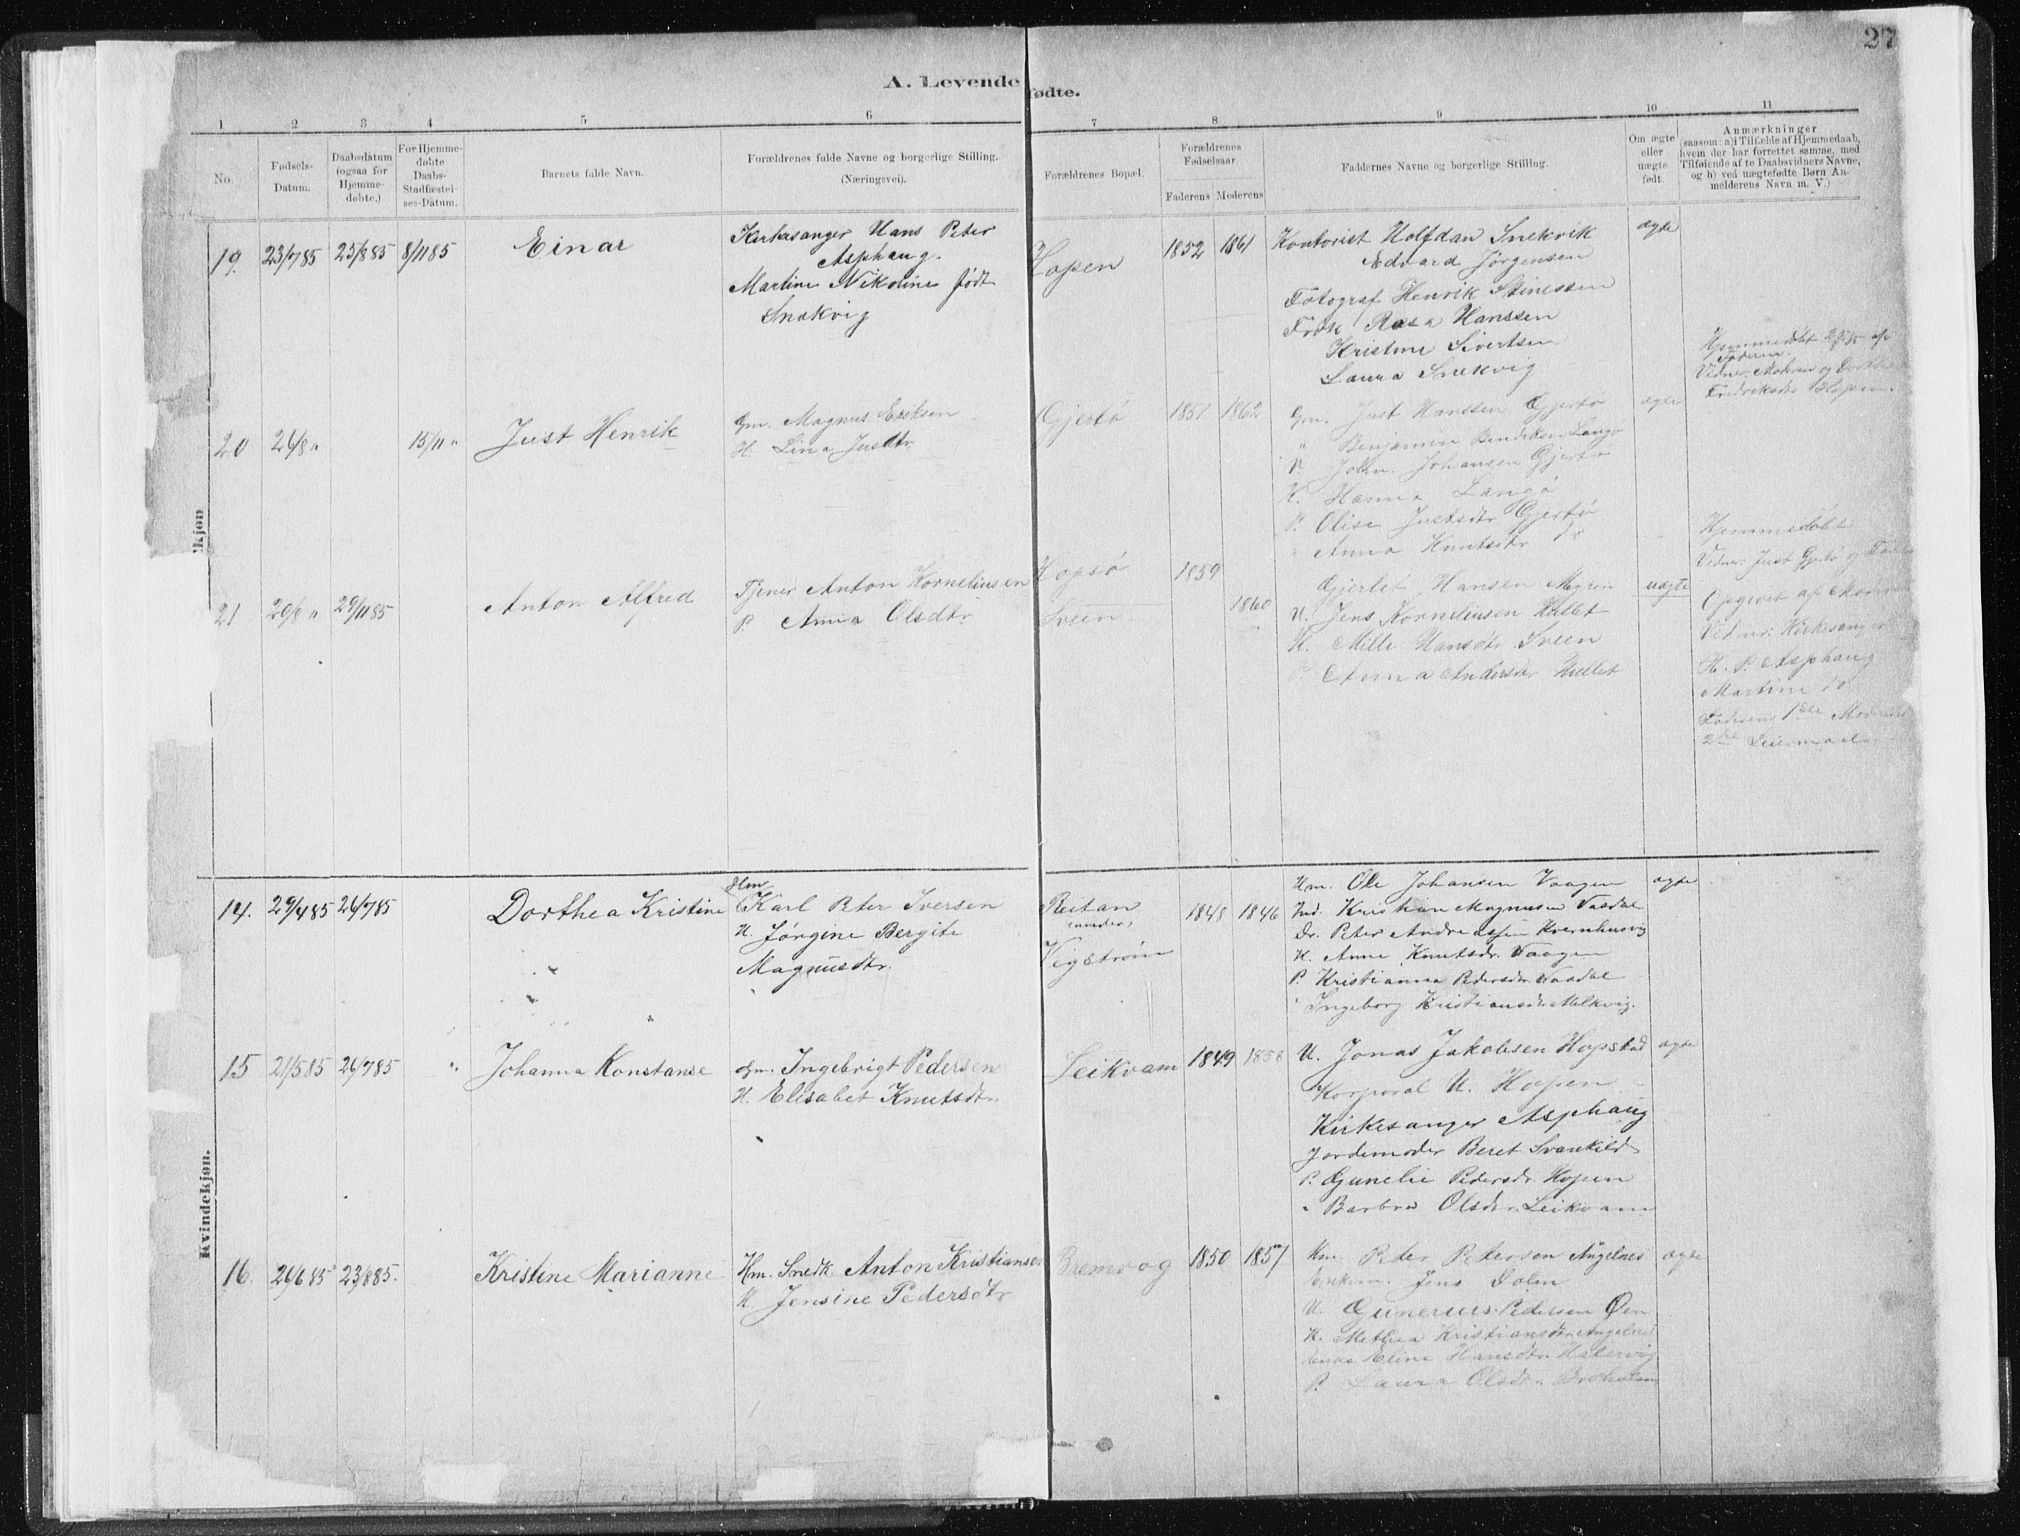 27
A. Levende fødte.
1 2 3 4 5 6 7 8 9 10 11
No.
Fødsels-
Datum.
Daabsdatum
(ogsaa for
Hjemme-
døbte.)
For Hjemme-
døbte
Daabs-
Stadfæstel-
ses-Datum.
Barnets fulde Navn.
Forældrenes fulde Navne og borgerlige Stilling.
(Næringsvei).
Forældrenes Bopæl.
Forældrenes
Fødselsaar.
Faderens Moderens
Faddernes Navne og borgerlige Stilling.
Om ægte
eller
uægte
født.
Anmærkninger
(saasom: a) i Tilfælde af Hjemmedaab,
hvem der har forrettet samme, med
Tilføiende af to Daabsvidners Navne,
og b) ved uægtefødte Børn An-
melderens Navn m. V.)
19. 23/7 85 25/8 85 8/11 85 Einar
Kirkesanger Hans Peter
Asphaug.
Martine Nikoline født
Snekvig
Hopen 1852 1861
Kontorist Halfdan Snekvik
Edvard Jørgensen
Fotograf Henrik Stinessen
Frøk Rosa Hanssen
Kristine Sivertsen
Laura Snekvig
ægte
Hjemmedøbt 25/8 85 af
Faderen.
20 26/8 " 15/11 " Just Henrik
Gm. Magnus Eriksen
H. Lina Justdtr.
Gjertø 1851 1862
Gm. Just Hanssen Gjertø
" Benjamin Bendiksen Langø
U. John Johansen Gjertø
H. Hanna Langø
P. Olise Justsdtr Gjertø
" Anna Knutsdtr do
ægte
Hjemmedøbt
Vidner: Just Gjertø og
21 20/8 " 29/11 85 Anton Alfred
Tjener Anton Korneliussen
P. Anna Olsdtr.
Hopsø
Sveen
1859
1860
Gjertlet Hansen Myren
U. Jens Korneliussen Hullet
H. Mille Hansdtr. Sveen
P. Anna Andersdtr Hullet
uægte
Opgivet af Moderen
Vidner: Kirkesanger
H. P. Asphaug
Martine do
Faderens 1ste Moderens
2det Leiermaal
Kvindekjøn.
14. 29/4 85 26/7 85 Dorthea Kristine
Hm
Karl Peter Iversen
H. Jørgine Bergite
Magnusdtr.
Reitan
(under)
Vigstrøm
1848 1846
Hm. Ole Johansen Vaagen
Ind. Kristian Magnussen Vasdal
Dr. Peter Andreassen Kvernhusvig
H. Anne Knutsdr. Vaagen
P. Kristianna Pedersdr. Vasdal
" Ingeborg Kristiansdtr. Melkvig.
ægte
15 21/5 85 26/7 85 " Johanna Konstanse
Gm. Ingebrigt Pedersen
H. Elisabet Knutsdtr.
Leikvam 1849 1858
U. Jonas Jakobsen Hopstad
Korporal U. Hopen
Kirkesanger Asphaug
Jordemoder Beret Svankild
P. Gunelie Pedersdr. Hopen
" Barbro Olsdtr. Leikvam
ægte
16. 26/6 85 23/8 85. Kristine Marianne
Hm. Snedk. Anton Kristiansen
H. Jensine Pedersdtr
Bremvog 1850 1857
Hm. Peter Petersen Angelnes
Enkem. Jens Dolm
U. Gunerius Pedersen Øen
H. Methea Kristiansdtr. Angelnes
Enke Eline Hansdtr. Halsvig
P. Laura Olsdtr. Broholm
ægte